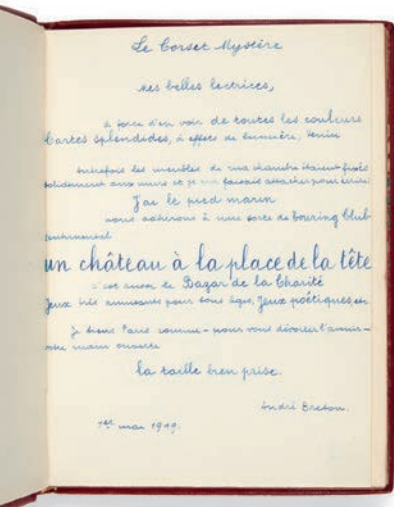 Le Corset Mystère
Mes belles lectrices,
à force d'en voir de toutes les couleurs
Cartes splendides, à effets de lumière, Venise
Autrefois les meubles de ma chambre étaient fixés
solidement aux murs et je me faisais attacher pour écrire
J'ai le pied marin
nous adhérons à une sorte de Touring Club
sentimental
un château à la place de la tête
c'est aussi le Bazar de la Charité
Jeux très amusants pour tous âges, Jeux poétiques, etc.
Je tiens Paris comme – pour vous dévoiler l'avenir –
votre main ouverte
la taille bien prise.
André Breton.
1er mai 1919.